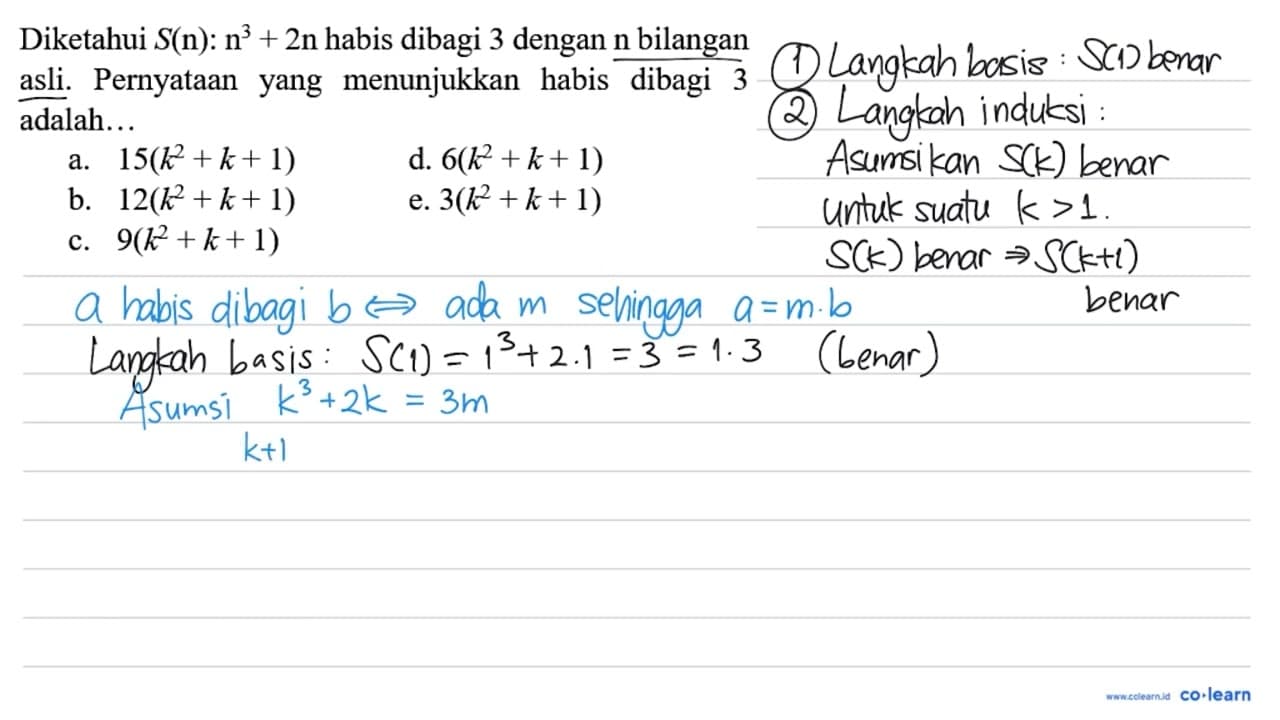 Diketahui S(n): n³ + 2n habis dibagi 3 dengan n bilangan
asli. Pernyataan yang menunjukkan habis dibagi 3
adalah…
a. 15(k² + k + 1)
b. 12(k² + k + 1)
c. 9(k² + k + 1)
d. 6(k² + k + 1)
e. 3(k² + k + 1)
① Langkah basis : S(1) benar
② Langkah induksi :
Asumsikan S(k) benar
untuk suatu k > 1.
S(k) benar ⇒ S(k+1)
benar
a habis dibagi b ⇔ ada m sehingga a = m.b
Langkah basis : S(1) = 1³ + 2.1 = 3 = 1.3 (benar)
Asumsi k³ + 2k = 3m
k+1
www.colearn.id co·learn